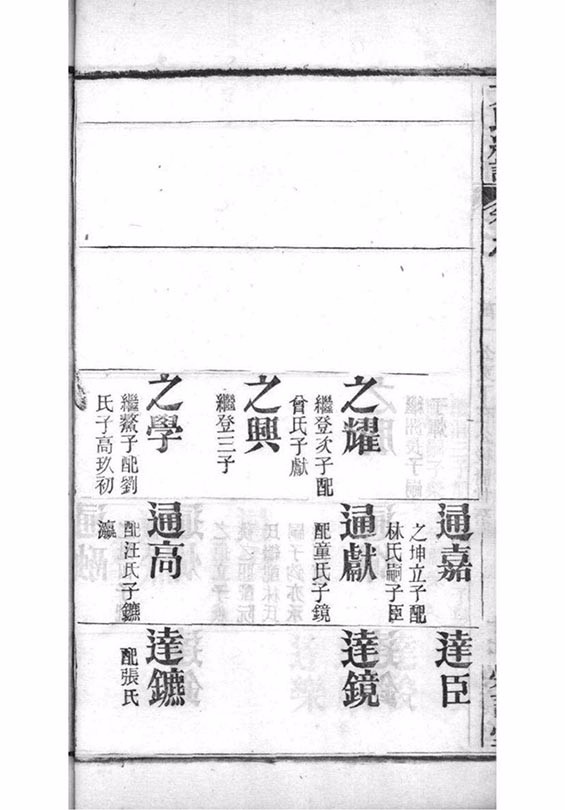 之耀
繼登次子配
曾氏子獻
之興
繼登三子
之學
繼鰲子配劉
氏子高玖初
瀛
通嘉
之坤立子配
林氏嗣子臣
通獻
配童氏子鏡
通高
配汪氏子鑣
達臣
達鏡
達鑣
配張氏